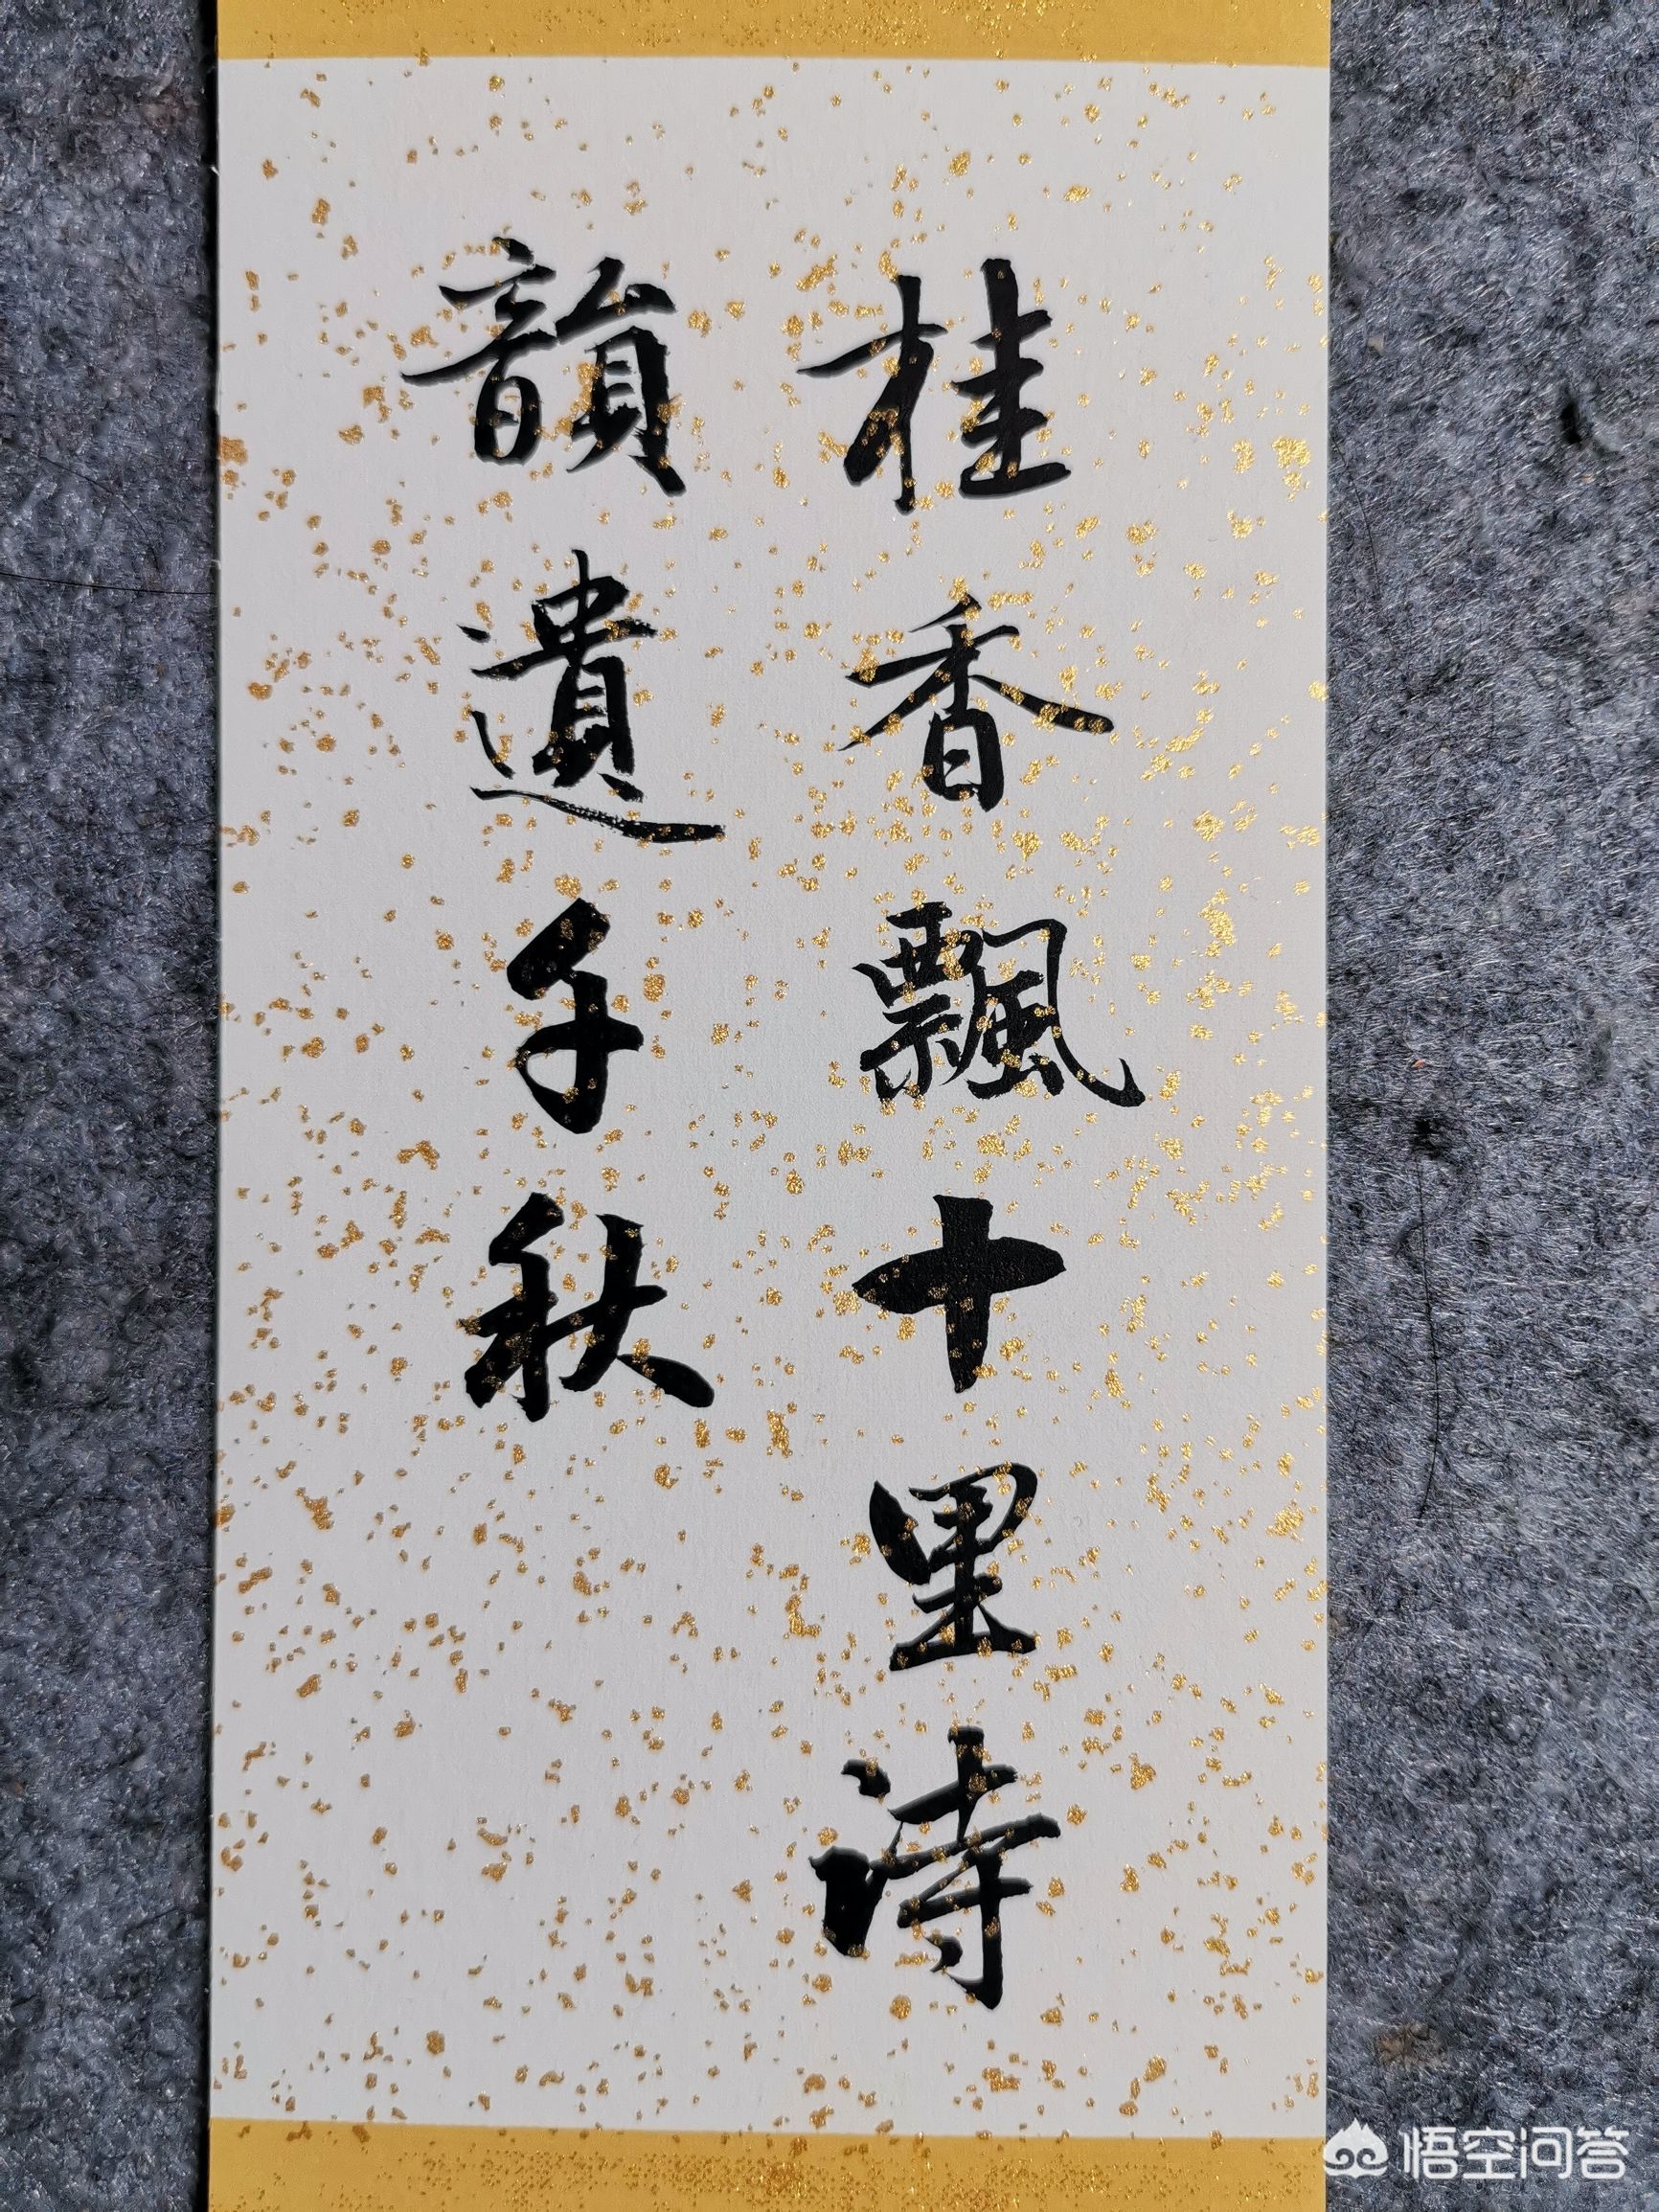 桂香飄十里詩
韻遺千秋
悟空问答